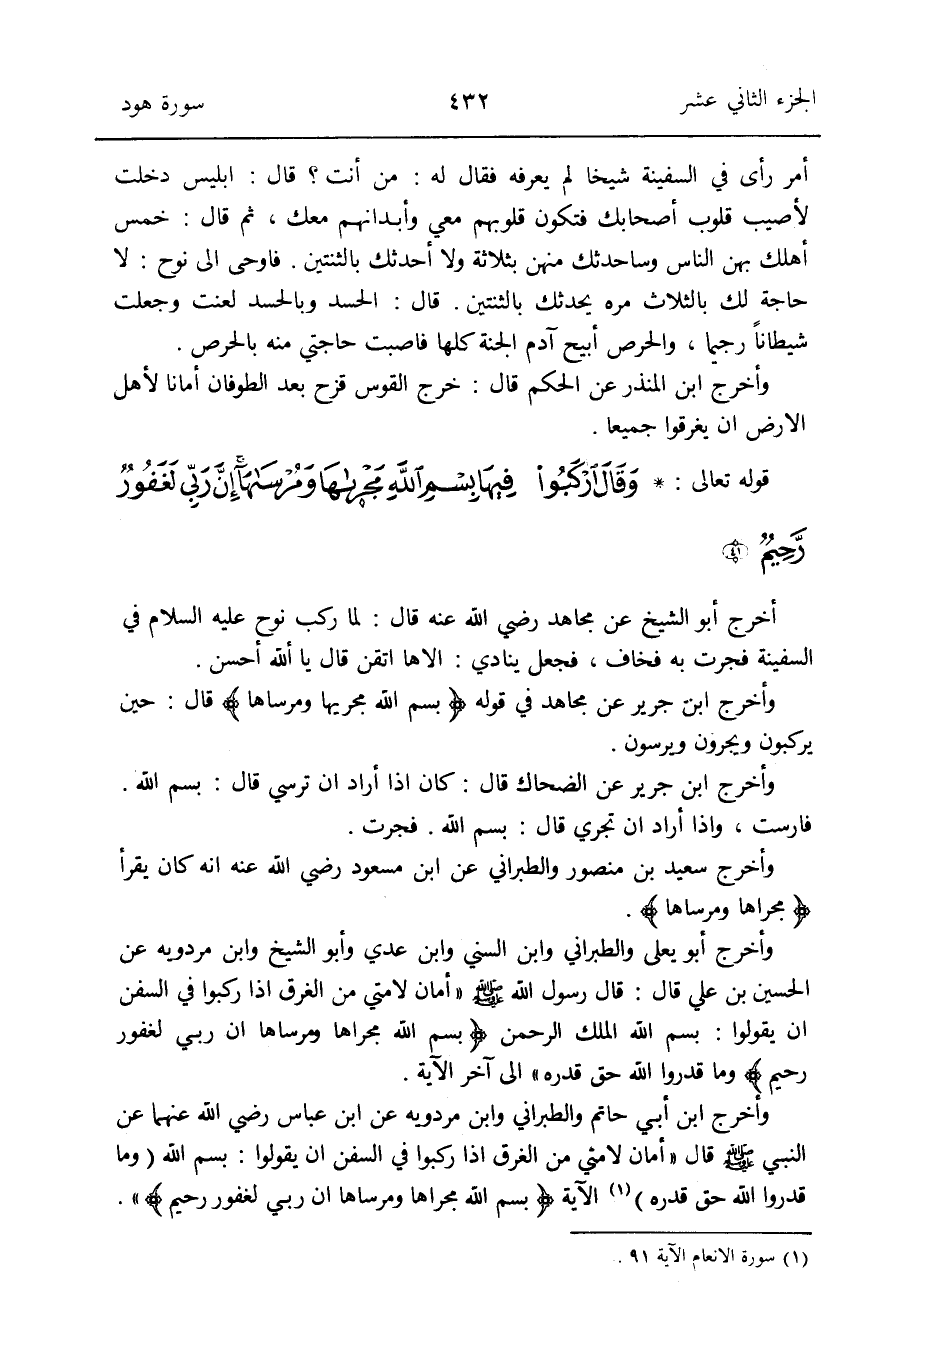 الجزء الثاني عشر ٤٣٢ سورة هود
أمر رأى في السفينة شيخا لم يعرفه فقال له : من أنت ؟ قال : ابليس دخلت
لأصيب قلوب أصحابك فتكون قلوبهم معي وأبدانهم معك ، ثم قال : خمس
أهلك بهن الناس وساحدثك منهن بثلاثة ولا أحدثك بالثنتين . فاوحى الى نوح : لا
حاجة لك بالثلاث مره يحدثك بالثنتين . قال : الحسد وبالحسد لعنت وجعلت
شيطاناً رجيما ، والحرص أبيح آدم الجنة كلها فاصبت حاجتي منه بالحرص .
وأخرج ابن المنذر عن الحكم قال : خرج القوس قزح بعد الطوفان أمانا لأهل
الارض ان يغرقوا جميعا .
قوله تعالى : * وَقَالَ ٱرۡكَبُواْ فِيهَا بِسۡمِ ٱللَّهِ مَجۡر۪ىٰهَا وَمُرۡسَىٰهَآۚ إِنَّ رَبِّي لَغَفُورٞ
رَّحِيمٞ ٤١
أخرج أبو الشيخ عن مجاهد رضي الله عنه قال : لما ركب نوح عليه السلام في
السفينة فجرت به فخاف ، فجعل ينادي : الاها اتقن قال يا ألله أحسن .
وأخرج ابن جرير عن مجاهد في قوله ﴿ بسم الله مجريها ومرساها ﴾ قال : حين
يركبون ويجرون ويرسون .
وأخرج ابن جرير عن الضحاك قال : كان اذا أراد ان ترسي قال : بسم الله .
فارست ، واذا أراد ان تجري قال : بسم الله . فجرت .
وأخرج سعيد بن منصور والطبراني عن ابن مسعود رضي الله عنه انه كان يقرأ
﴿ مجراها ومرساها ﴾ .
وأخرج أبو يعلى والطبراني وابن السني وابن عدي وأبو الشيخ وابن مردويه عن
الحسين بن علي قال : قال رسول الله ﷺ « أمان لامتي من الغرق اذا ركبوا في السفن
ان يقولوا : بسم الله الملك الرحمن ﴿ بسم الله مجراها ومرساها ان ربي لغفور
رحيم ﴾ وما قدروا الله حق قدره » الى آخر الآية .
وأخرج ابن أبي حاتم والطبراني وابن مردويه عن ابن عباس رضي الله عنهما عن
النبي ﷺ قال « أمان لامتي من الغرق اذا ركبوا في السفن ان يقولوا : بسم الله ( وما
قدروا الله حق قدره ) (١) الآية ﴿ بسم الله مجراها ومرساها ان ربي لغفور رحيم ﴾ » .
(١) سورة الانعام الآية ٩١ .